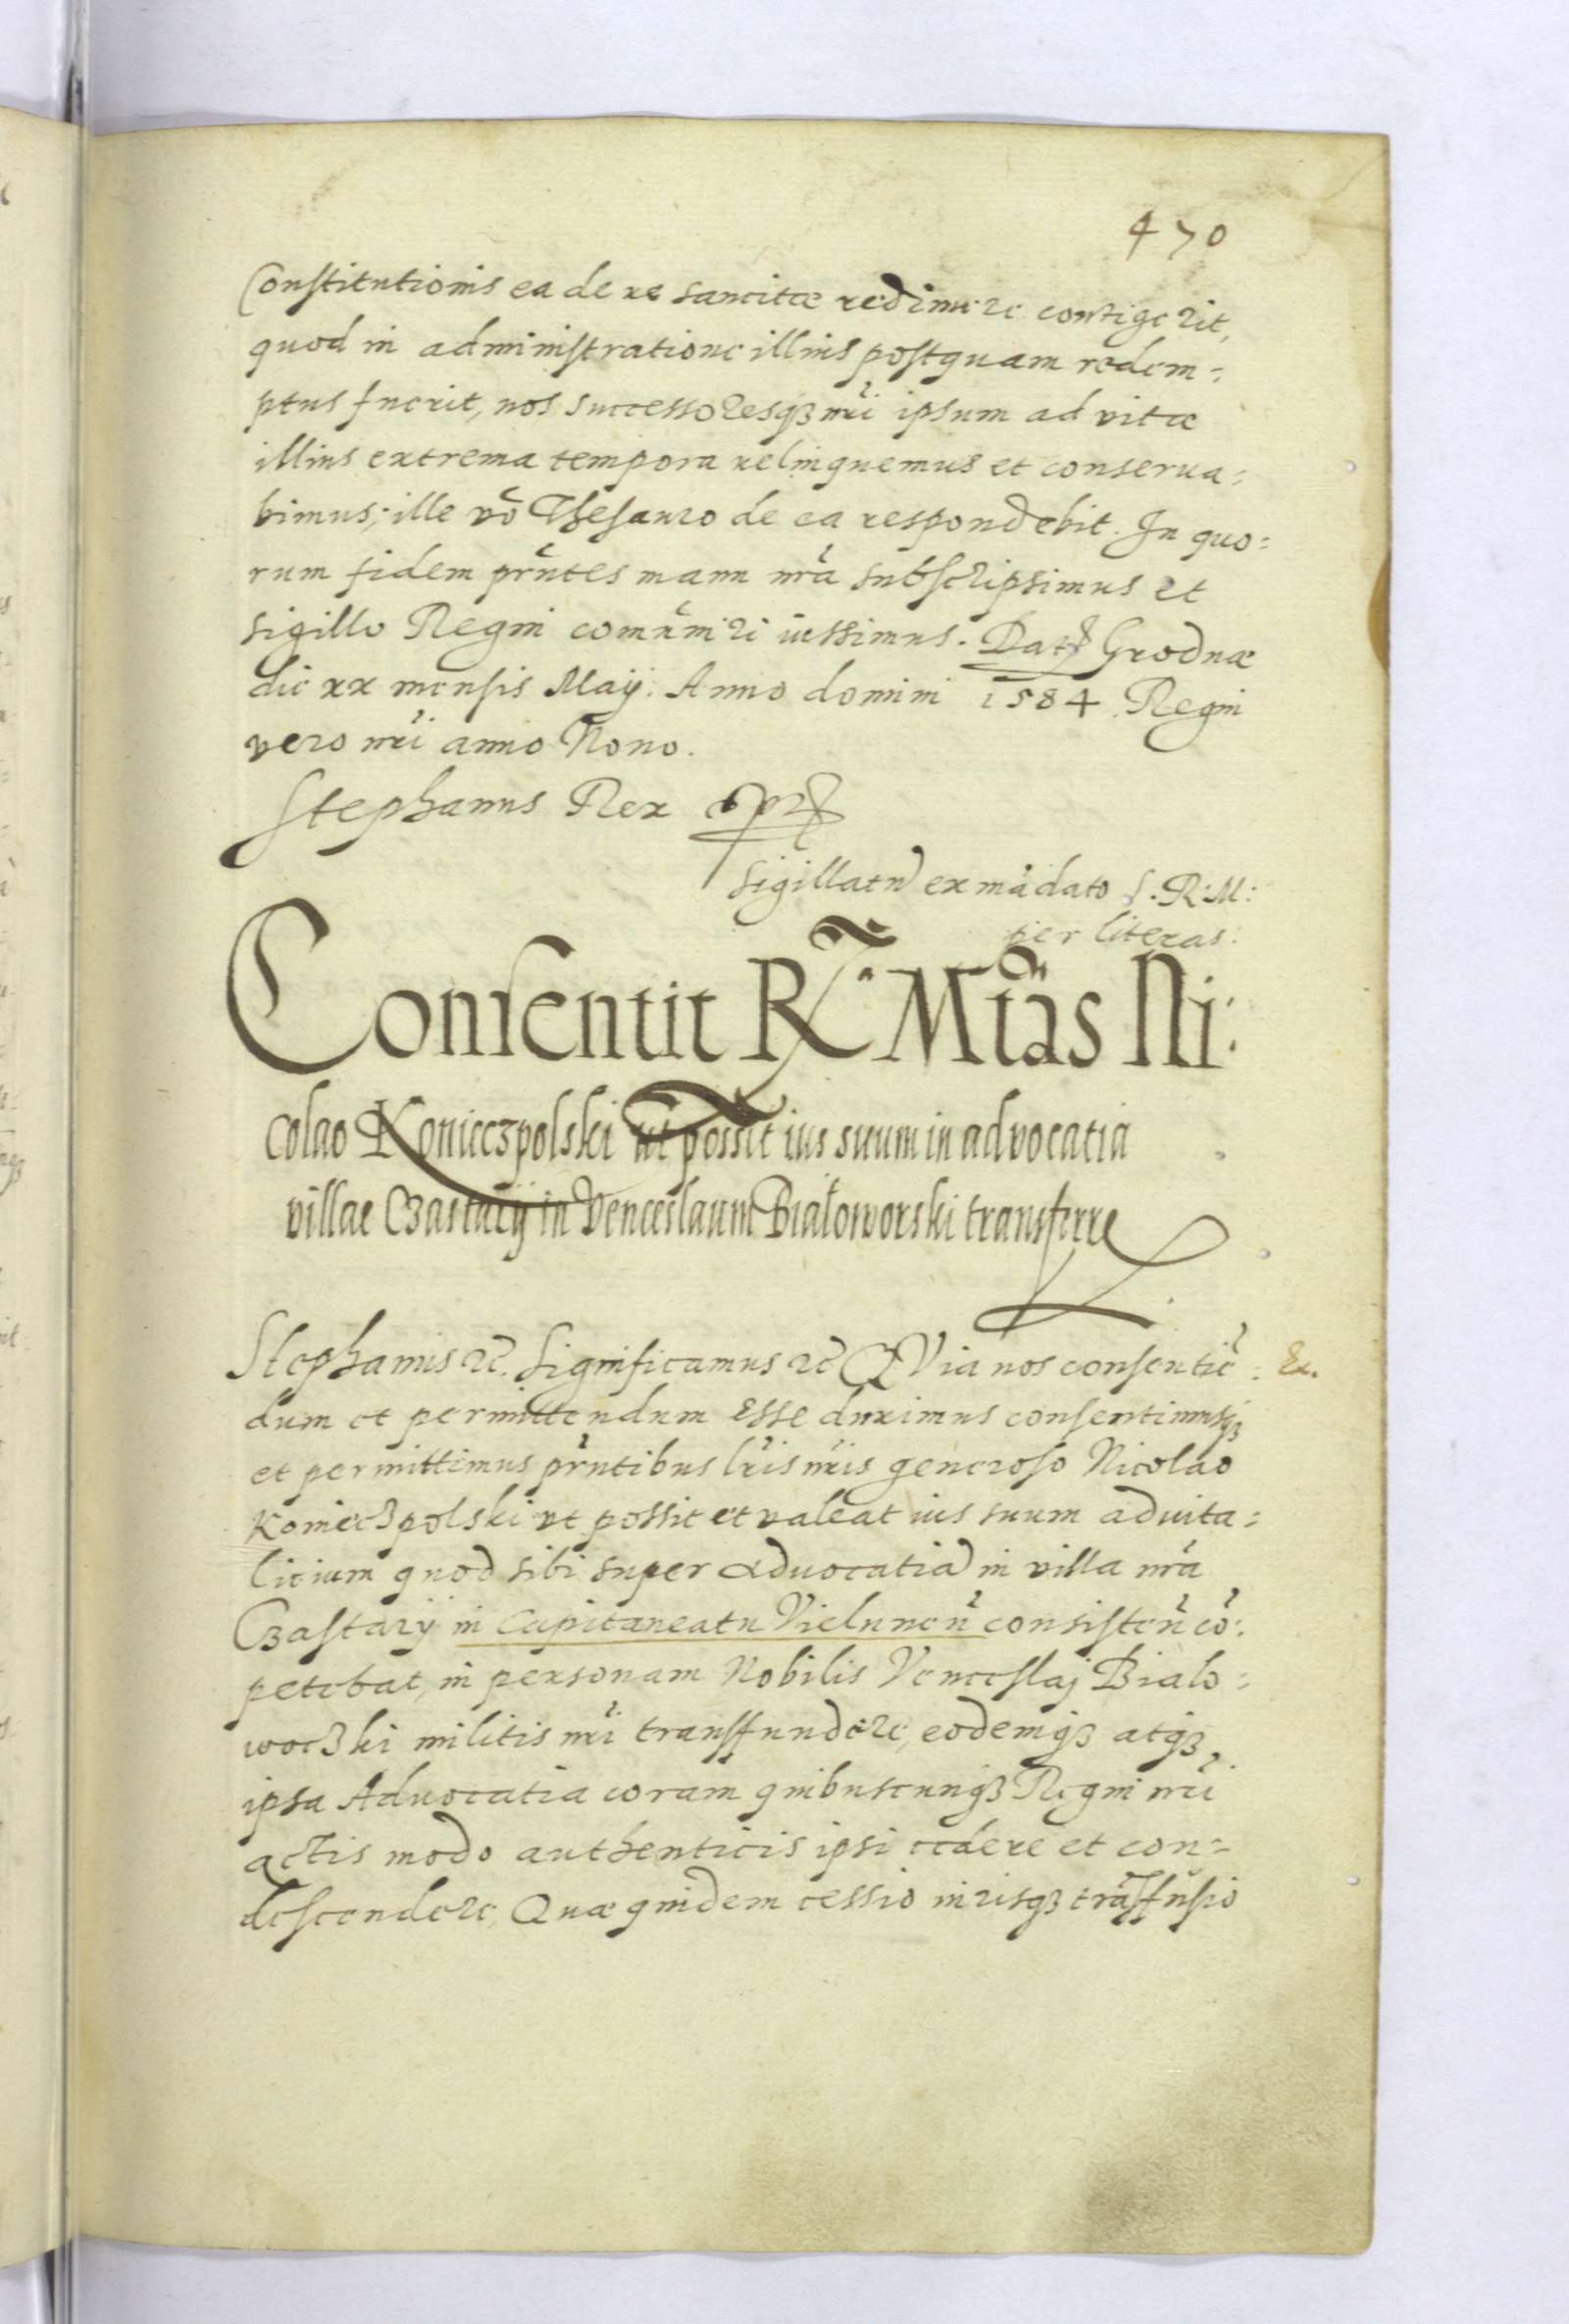 470
Constitutionis ea de re sancitæ redimere contigerit,
quod in administratione illius postquam redem=
ptus fuerit, nos successoresqꝫ nr̃i ipsum ad vitæ
illius extrema tempora relinquemus et conserua=
bimus; ille vo᷃ Thesauro de ea respondebit. In quo=
rum fidem pr̃ntes manu nr̃a subscripsimus et
sigillo Regni com̃uniri iussimus. Datꝭ Grodnæ
die xx mensis Maij. Anno domini 1584 Regni
vero nr̃i anno Nono.
Stephanus Rex
Sigillatu͂ ex mãdato S.R:M:
per literas:
Consentit R.ª Mtãs Ni:
colao Konieczpolski ut possit ius suum in advocatia
villae Czastarÿ in Venceslaum Białoworski transferre
Stephanus ꝛc̃. Significamus ꝛc̃ QVia nos consentie᷃=
dum et permittendum esse duximus consentimusqꝫ
et permittimus pr̃ntibus lr̃is nr̃is generoso Nicolao
Koniecꝫpolski vt possit et valeat ius suum aduita=
licium quod sibi super aduocatia in villa nr̃a
Cꝫastarÿ in Capitaneatu Vielunen̄ consisten̄ co᷃:
petebat, in personam Nobilis Venceslaj Bialo=
wocꝫki militis nr̃i transfundere, eodemqꝫ atqꝫ
ipsa Aduocatia coram quibuscunqꝫ Regni nr̃i
actis modo authenticis ipsi cedere et con=
descendere, Quæ quidem cessio iurisqꝫ trãsfusio
Ex.